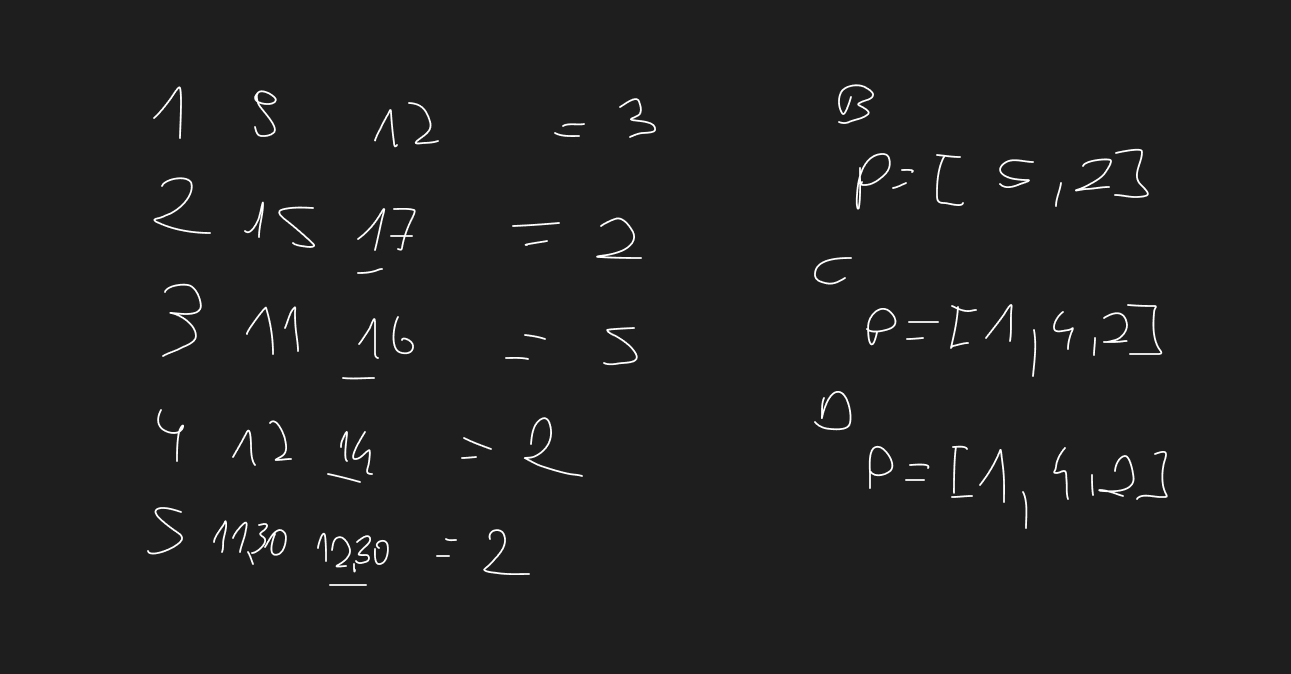 1 9 12 = 3
2 15 17 = 2
3 11 16 = 5
4 12 14 = 2
5 11,30 12,30 = 2
B
P=[ 5,2]
C
P=[1,4,2]
D
P=[1,4,2]